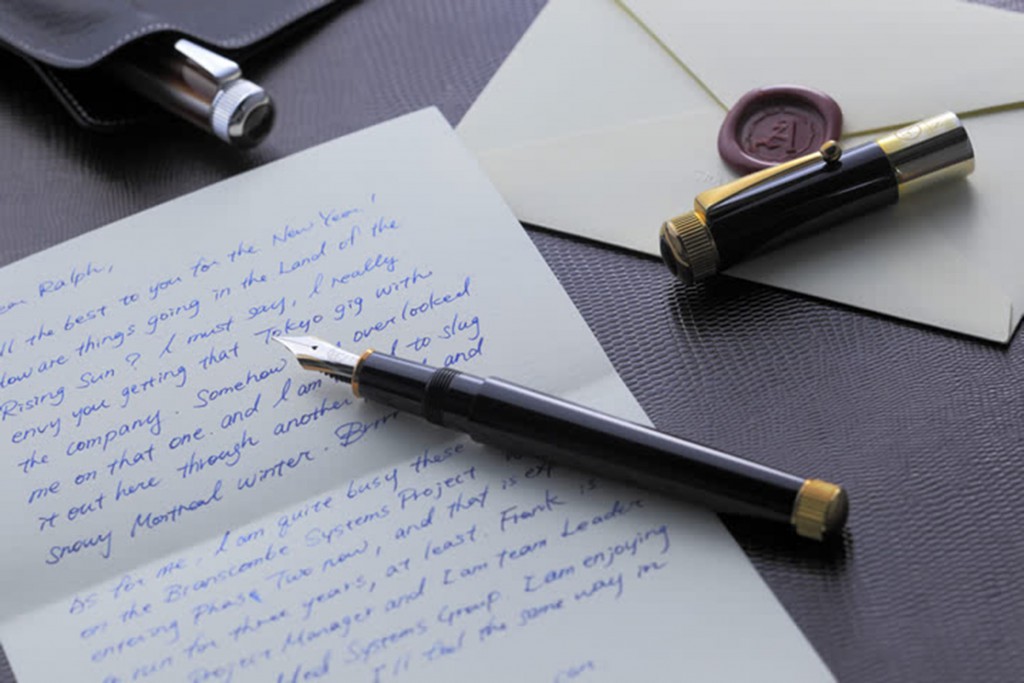 Ralph,
All the best to you for the New Year!
How are things going in the Land of the
Rising Sun? I must say, I really
envy you getting that Tokyo gig with
the company. Somehow overlooked
me on that one and I am to slug
it out here through another and
snowy Montreal winter. Brrr
As for me, I am quite busy these
on the Branscombe Systems Project
entering Phase Two now, and that is
to run for three years, at least. Frank is
Project Manager and I am Team Leader
Systems Group. I am enjoying
I'll feel the same way in
can
A